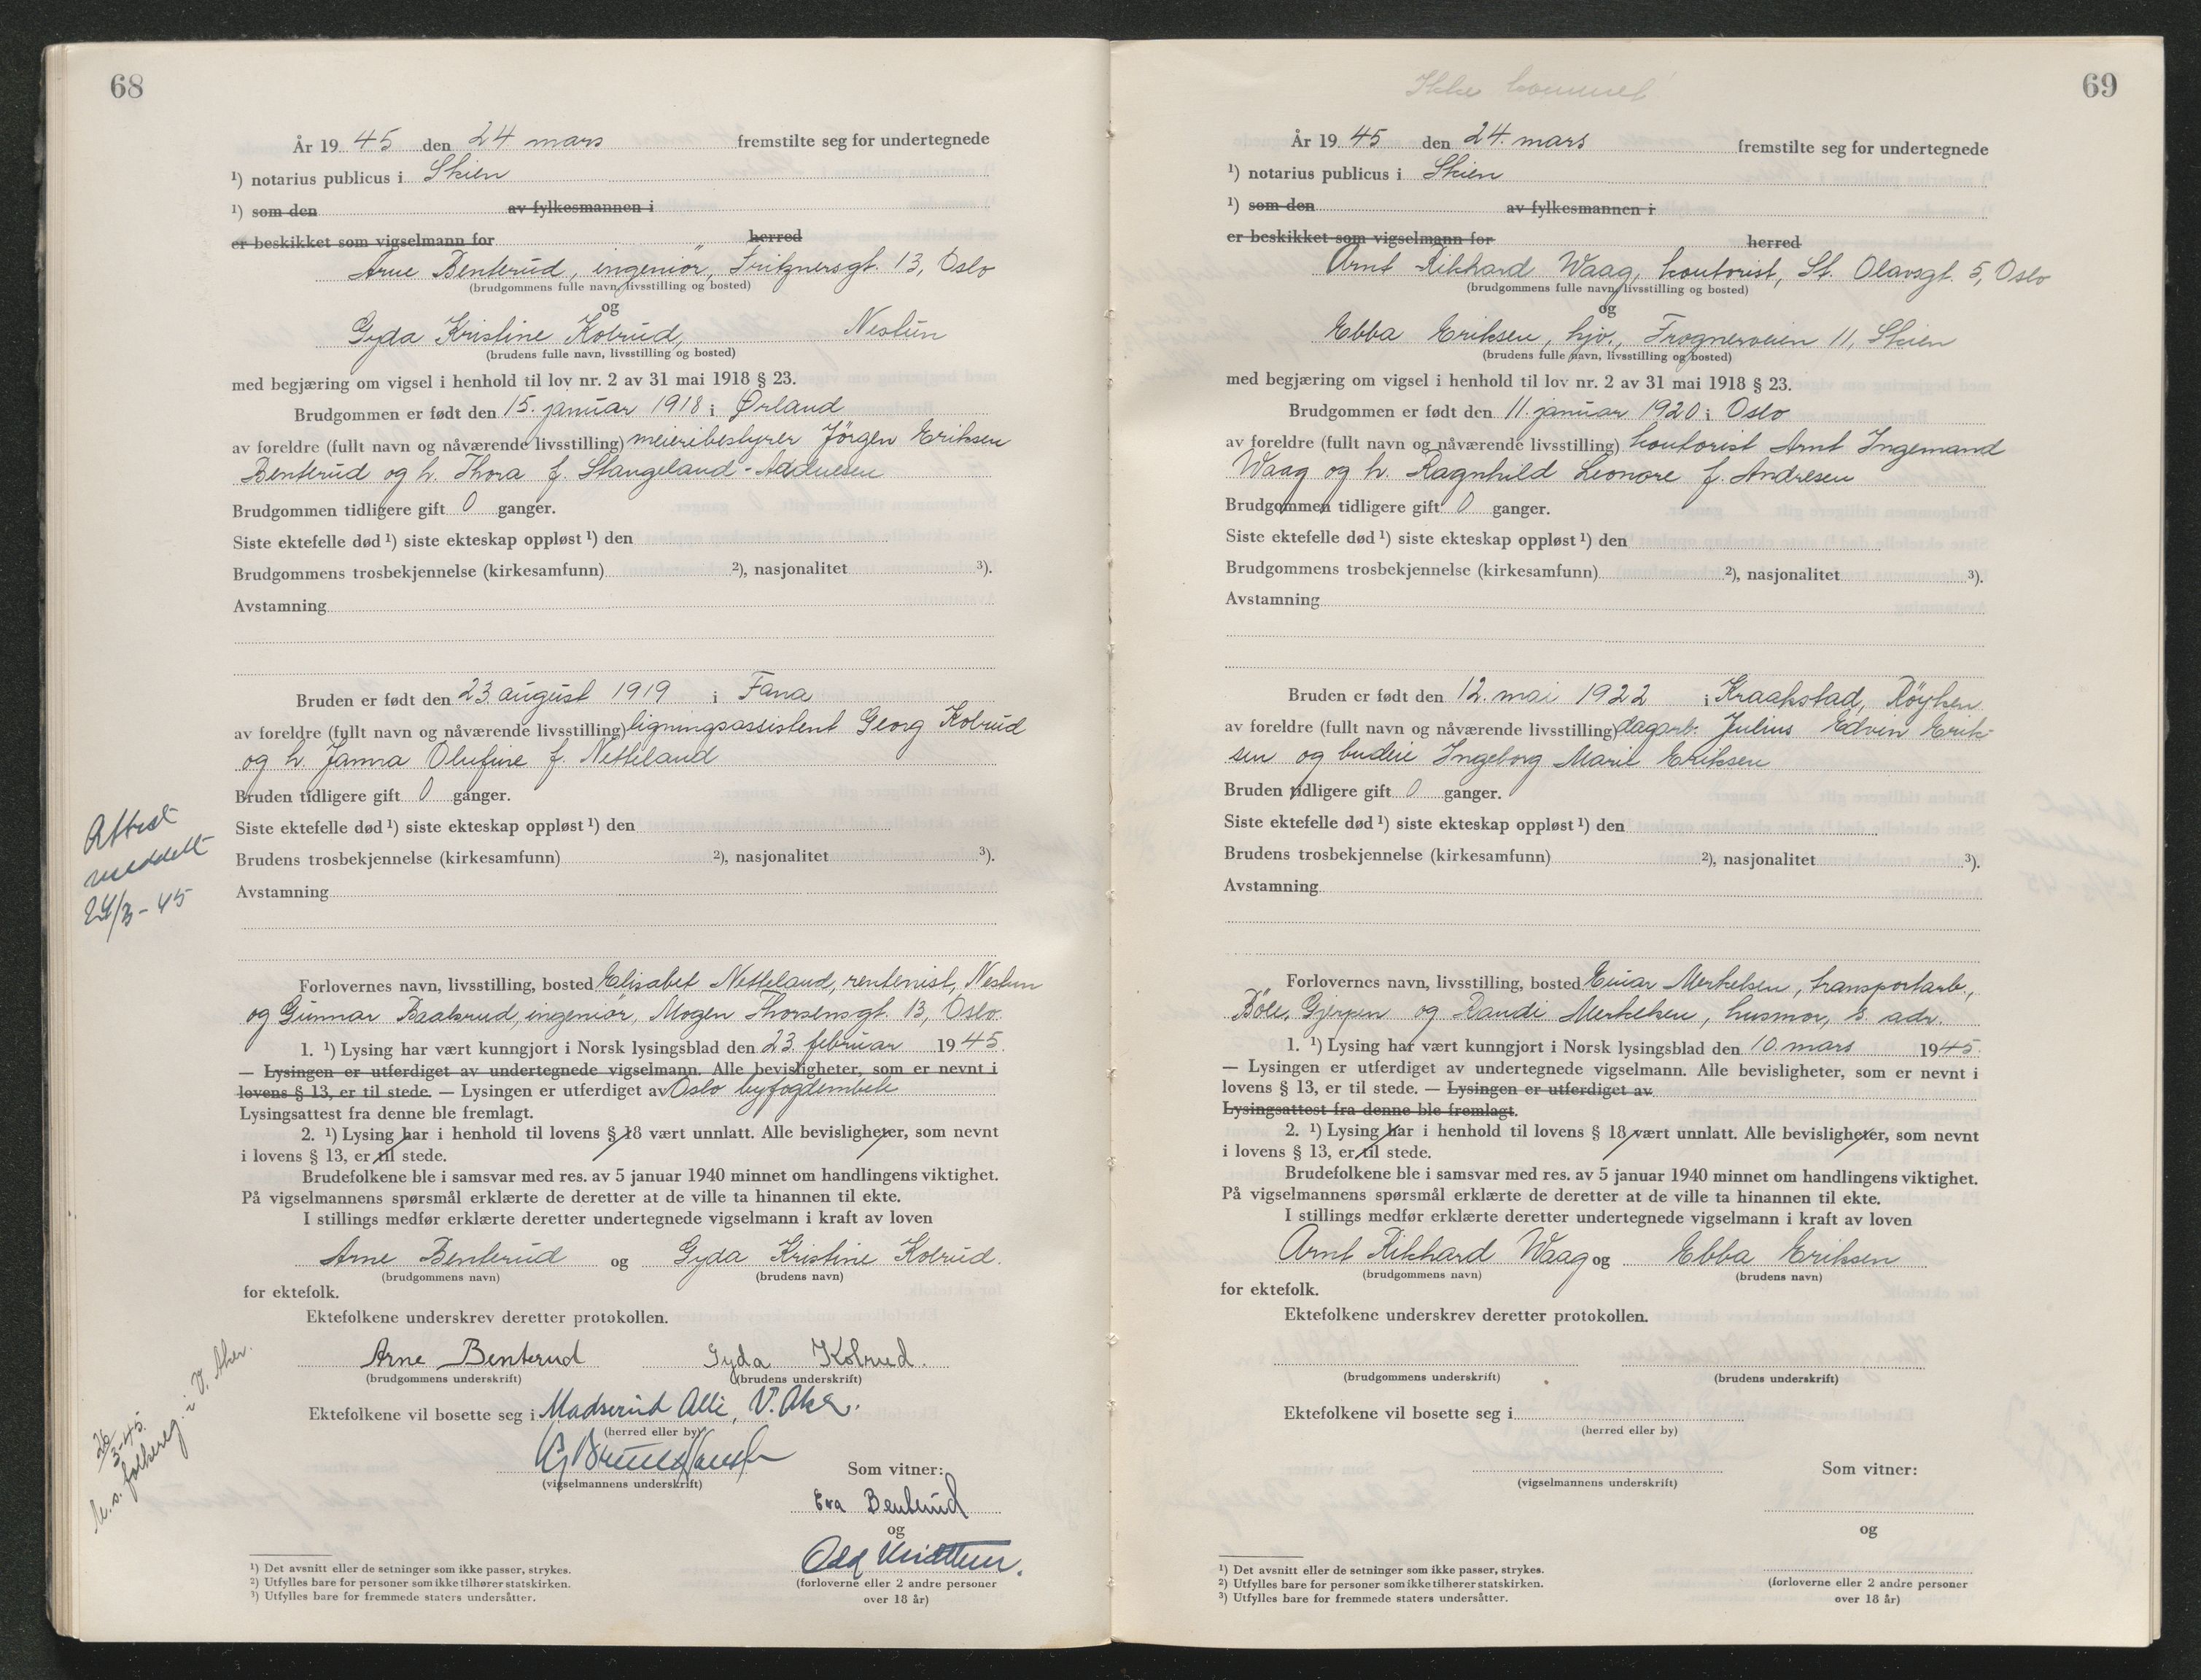 68
År 19 45 den 24 mars fremstilte seg for undertegnede
¹) notarius publicus i Skien
¹) som den av fylkesmannen i
er beskikket som vigselmann for herred
Arne Benterud, ingeniör, Fritznersgt. 13, Oslo
(brudgommens fulle navn, livsstilling og bosted)
og
Gyda Kristine Kolrud, Nestun
(brudens fulle navn, livsstilling og bosted)
med begjæring om vigsel i henhold til lov nr. 2 av 31 mai 1918 § 23.
Brudgommen er født den 15. januar 1918 i Ørland
av foreldre (fullt navn og nåværende livsstilling) meieribestyrer Jörgen Eriksen
Benterud og h. Thora f. Stangeland-
Brudgommen tidligere gift 0 ganger.
Siste ektefelle død ¹) siste ekteskap oppløst ¹) den
Brudgommens trosbekjennelse (kirkesamfunn) ²), nasjonalitet ³).
Avstamning
Bruden er født den 23. august 1919 i Fana
av foreldre (fullt navn og nåværende livsstilling) ligningsassistent Georg Kolrud
og h. Janna Olufine f. Nesteland
Bruden tidligere gift 0 ganger.
Siste ektefelle død ¹) siste ekteskap oppløst ¹) den
Brudens trosbekjennelse (kirkesamfunn) ²), nasjonalitet ³).
Avstamning
Attest
meddelt
24/3-45
Forlovernes navn, livsstilling, bosted Elisabet Netteland, rentenist, Nestun
og Gunnar Baalsrud, ingeniör, Mogen Thorsensgt. 13, Oslo.
1. ¹) Lysing har vært kunngjort i Norsk lysingsblad den 23. februar 19 45.
— Lysingen er utferdiget av undertegnede vigselmann. Alle bevisligheter, som er nevnt i
lovens § 13, er til stede. — Lysingen er utferdiget av Oslo byfogdembete
Lysingsattest fra denne ble fremlagt.
2. ¹) Lysing har i henhold til lovens § 18 vært unnlatt. Alle bevisligheter, som nevnt
i lovens § 13, er til stede.
Brudefolkene ble i samsvar med res. av 5 januar 1940 minnet om handlingens viktighet.
På vigselmannens spørsmål erklærte de deretter at de ville ta hinannen til ekte.
I stillings medfør erklærte deretter undertegnede vigselmann i kraft av loven
Arne Benterud og Gyda Kristine Kolrud.
(brudgommens navn) (brudens navn)
for ektefolk.
Ektefolkene underskrev deretter protokollen.
Arne Benterud Gyda Kolrud.
(brudgommens underskrift) (brudens underskrift)
Ektefolkene vil bosette seg i Madserud Allé, V. Aker.
(herred eller by)
(vigselmannens underskrift)
Som vitner:
Eva Benterud
og
Odd
(forloverne eller 2 andre personer
over 18 år)
26/3-45.
M. s. folkereg. i V. Aker.
¹) Det avsnitt eller de setninger som ikke passer, strykes.
²) Utfylles bare for personer som ikke tilhører statskirken.
³) Utfylles bare for fremmede staters undersåtter.
69
Ikke kommet
År 19 45 den 24. mars fremstilte seg for undertegnede
¹) notarius publicus i Skien
¹) som den av fylkesmannen i
er beskikket som vigselmann for herred
Arnt Rikhard Waag, kontorist, St. Olavsgt. 5, Oslo
(brudgommens fulle navn, livsstilling og bosted)
og
Ebba Eriksen, hjv., Frognerveien 11, Skien
(brudens fulle navn, livsstilling og bosted)
med begjæring om vigsel i henhold til lov nr. 2 av 31 mai 1918 § 23.
Brudgommen er født den 11. januar 1920 i Oslo
av foreldre (fullt navn og nåværende livsstilling) kontorist Arnt Ingemand
Waag og h. Ragnhild Leonore f. Andresen
Brudgommen tidligere gift 0 ganger.
Siste ektefelle død ¹) siste ekteskap oppløst ¹) den
Brudgommens trosbekjennelse (kirkesamfunn) ²), nasjonalitet ³).
Avstamning
Bruden er født den 12. mai 1922 i Kraakstad, Röyken
av foreldre (fullt navn og nåværende livsstilling) dagarb. Julius Edvin Erik-
sen og budeie Ingeborg Marie Eriksen
Bruden tidligere gift 0 ganger.
Siste ektefelle død ¹) siste ekteskap oppløst ¹) den
Brudens trosbekjennelse (kirkesamfunn) ²), nasjonalitet ³).
Avstamning
Forlovernes navn, livsstilling, bosted Einar Merkelsen, transportarb.,
Böle, Gjerpen og Randi Merkelsen, husmor, s. adr.
1. ¹) Lysing har vært kunngjort i Norsk lysingsblad den 10. mars 19 45.
— Lysingen er utferdiget av undertegnede vigselmann. Alle bevisligheter, som er nevnt i
lovens § 13, er til stede. — Lysingen er utferdiget av
Lysingsattest fra denne ble fremlagt.
2. ¹) Lysing har i henhold til lovens § 18 vært unnlatt. Alle bevisligheter, som nevnt
i lovens § 13, er til stede.
Brudefolkene ble i samsvar med res. av 5 januar 1940 minnet om handlingens viktighet.
På vigselmannens spørsmål erklærte de deretter at de ville ta hinannen til ekte.
I stillings medfør erklærte deretter undertegnede vigselmann i kraft av loven
Arnt Rikhard Waag og Ebba Eriksen
(brudgommens navn) (brudens navn)
for ektefolk.
Ektefolkene underskrev deretter protokollen.
(brudgommens underskrift) (brudens underskrift)
Ektefolkene vil bosette seg i
(herred eller by)
(vigselmannens underskrift)
Som vitner:
og
(forloverne eller 2 andre personer
over 18 år)
¹) Det avsnitt eller de setninger som ikke passer, strykes.
²) Utfylles bare for personer som ikke tilhører statskirken.
³) Utfylles bare for fremmede staters undersåtter.